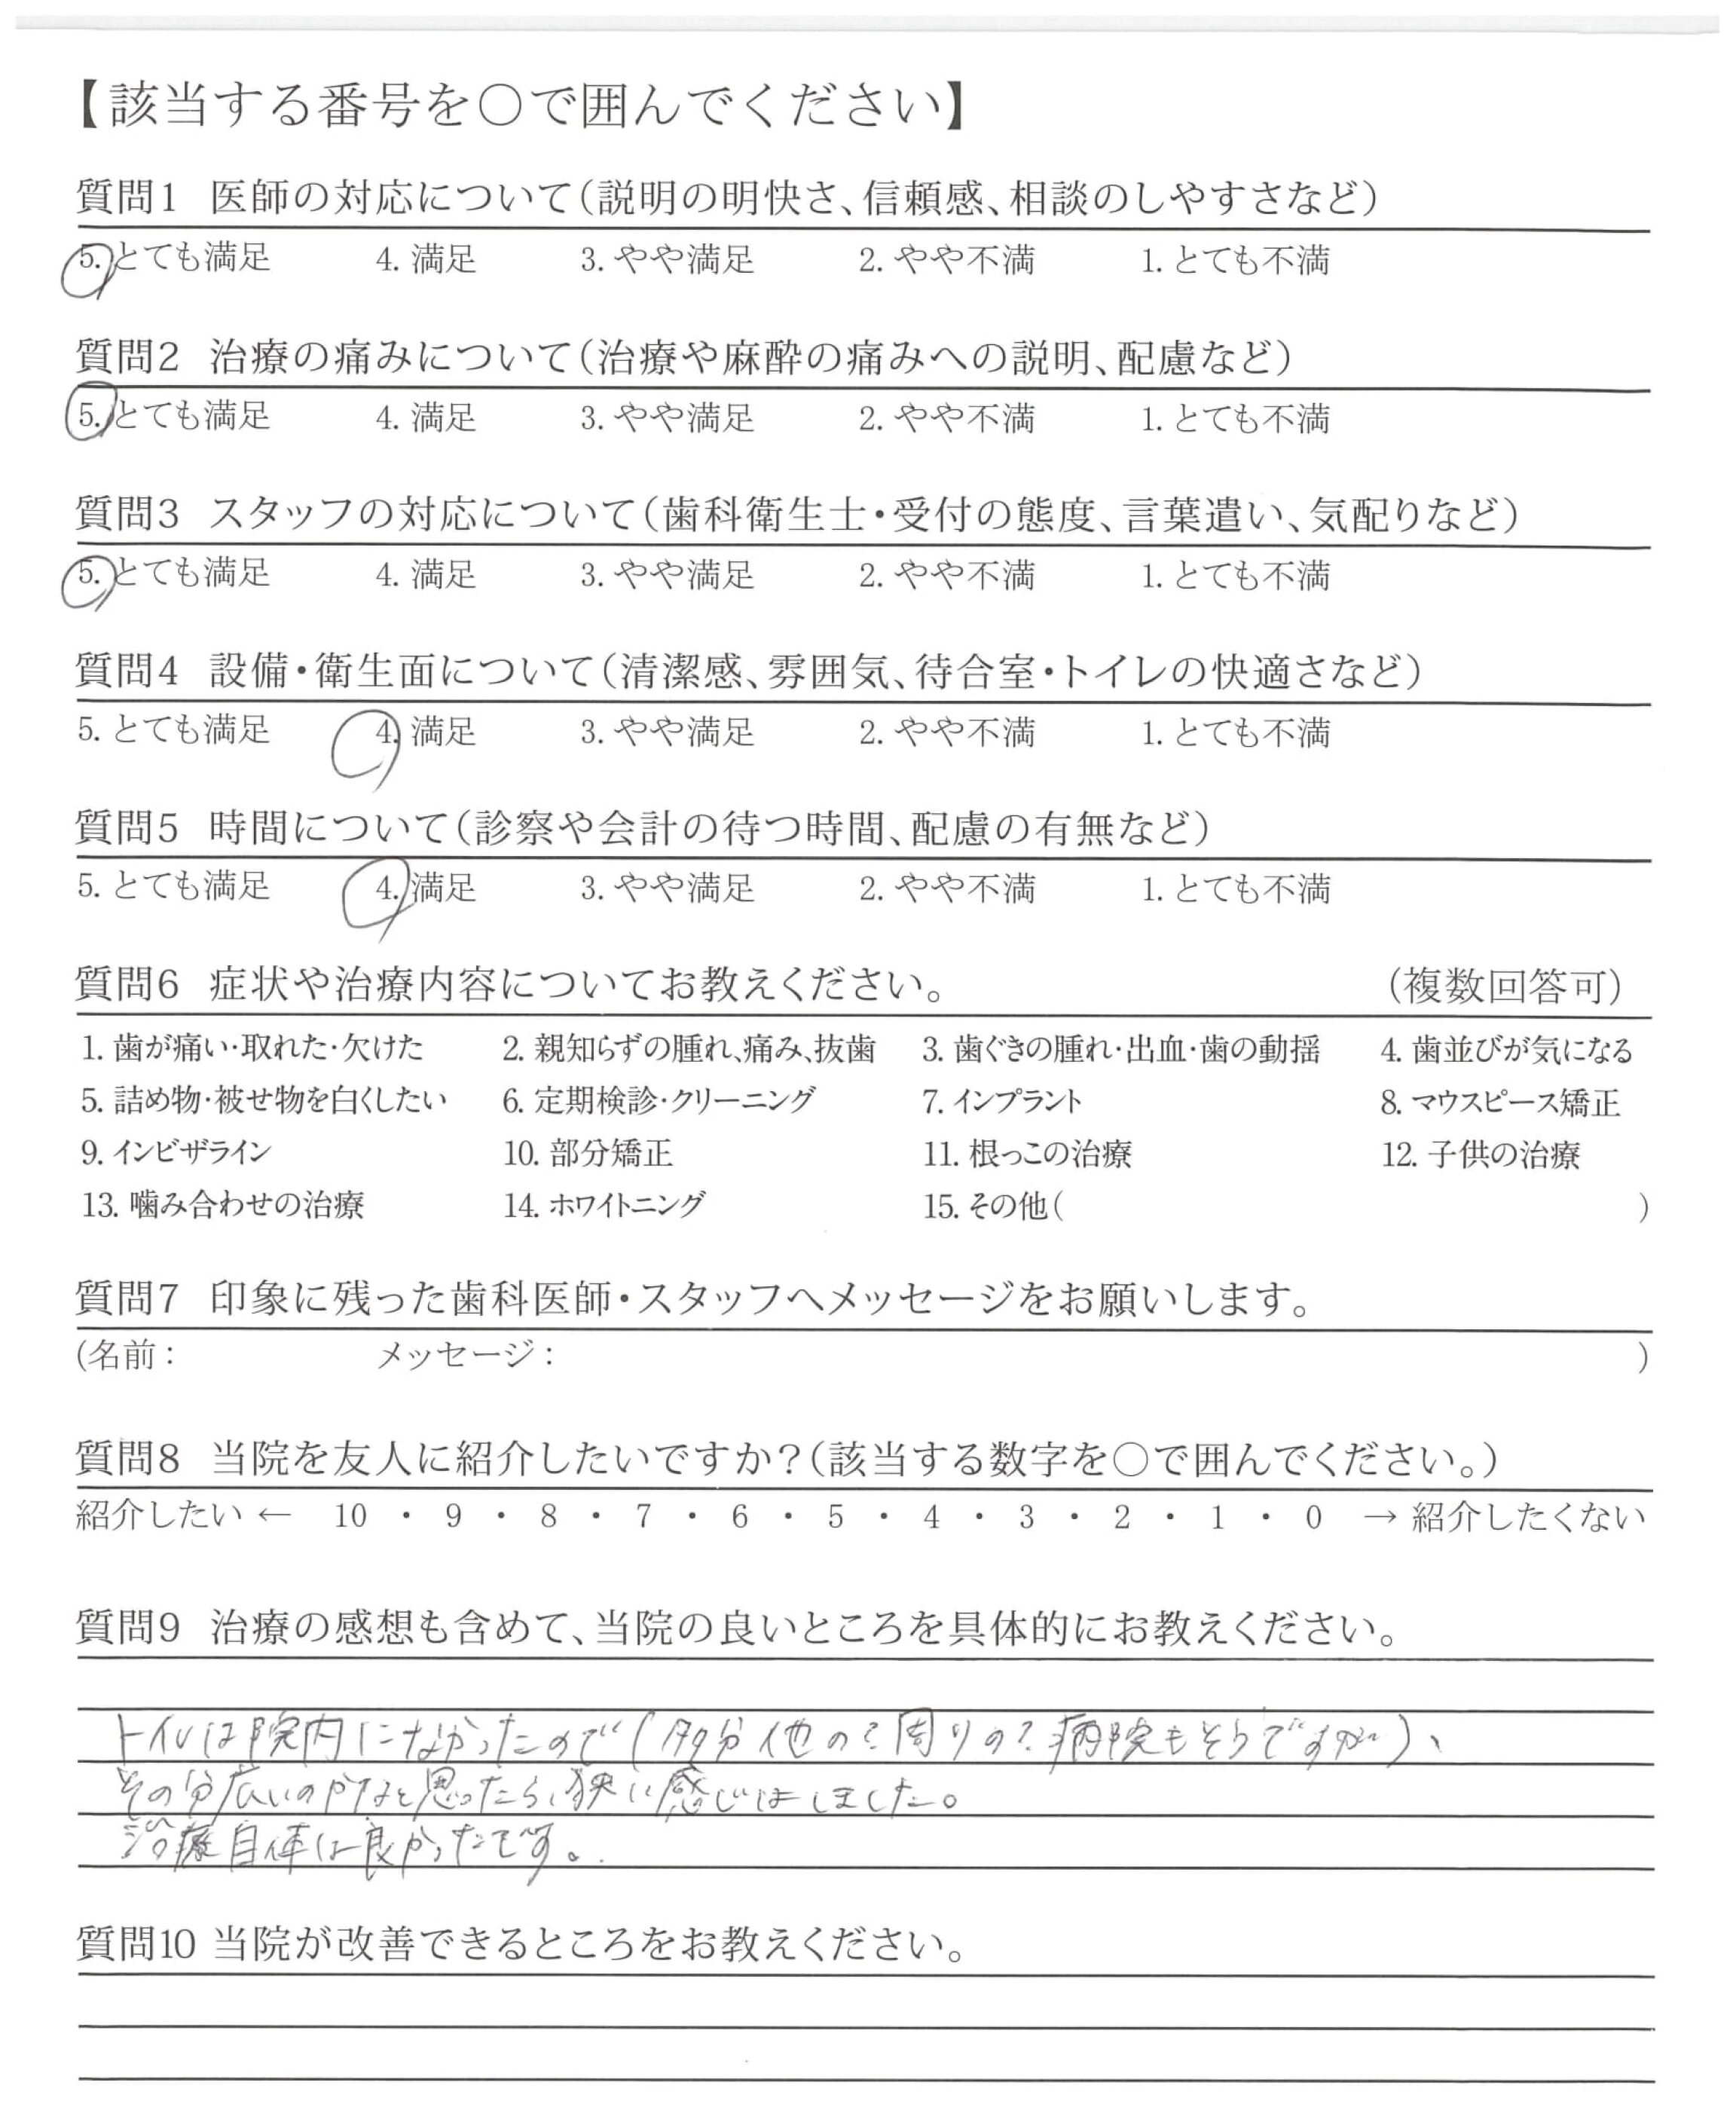 【該当する番号を○で囲んでください】
質問1 医師の対応について(説明の明快さ、信頼感、相談のしやすさなど)
5. とても満足 4. 満足 3. やや満足 2. やや不満 1. とても不満
質問2 治療の痛みについて(治療や麻酔の痛みへの説明、配慮など)
5. とても満足 4. 満足 3. やや満足 2. やや不満 1. とても不満
質問3 スタッフの対応について(歯科衛生士・受付の態度、言葉遣い、気配りなど)
5. とても満足 4. 満足 3. やや満足 2. やや不満 1. とても不満
質問4 設備・衛生面について(清潔感、雰囲気、待合室・トイレの快適さなど)
5. とても満足 4. 満足 3. やや満足 2. やや不満 1. とても不満
質問5 時間について(診察や会計の待つ時間、配慮の有無など)
5. とても満足 4. 満足 3. やや満足 2. やや不満 1. とても不満
質問6 症状や治療内容についてお教えください。 (複数回答可)
1. 歯が痛い・取れた・欠けた 2. 親知らずの腫れ、痛み、抜歯 3. 歯ぐきの腫れ・出血・歯の動揺 4. 歯並びが気になる
5. 詰め物・被せ物を白くしたい 6. 定期検診・クリーニング 7. インプラント 8. マウスピース矯正
9. インビザライン 10. 部分矯正 11. 根っこの治療 12. 子供の治療
13. 噛み合わせの治療 14. ホワイトニング 15. その他( )
質問7 印象に残った歯科医師・スタッフへメッセージをお願いします。
(名前: メッセージ: )
質問8 当院を友人に紹介したいですか?(該当する数字を○で囲んでください。)
紹介したい ← 10 ・ 9 ・ 8 ・ 7 ・ 6 ・ 5 ・ 4 ・ 3 ・ 2 ・ 1 ・ 0 → 紹介したくない
質問9 治療の感想も含めて、当院の良いところを具体的にお教えください。
トイレは院内になかったので(多分他の?周りの?病院もそうですが)、
その分広いのかなと思ったら、狭い感じはしました。
治療自体は良かったです。
質問10 当院が改善できるところをお教えください。